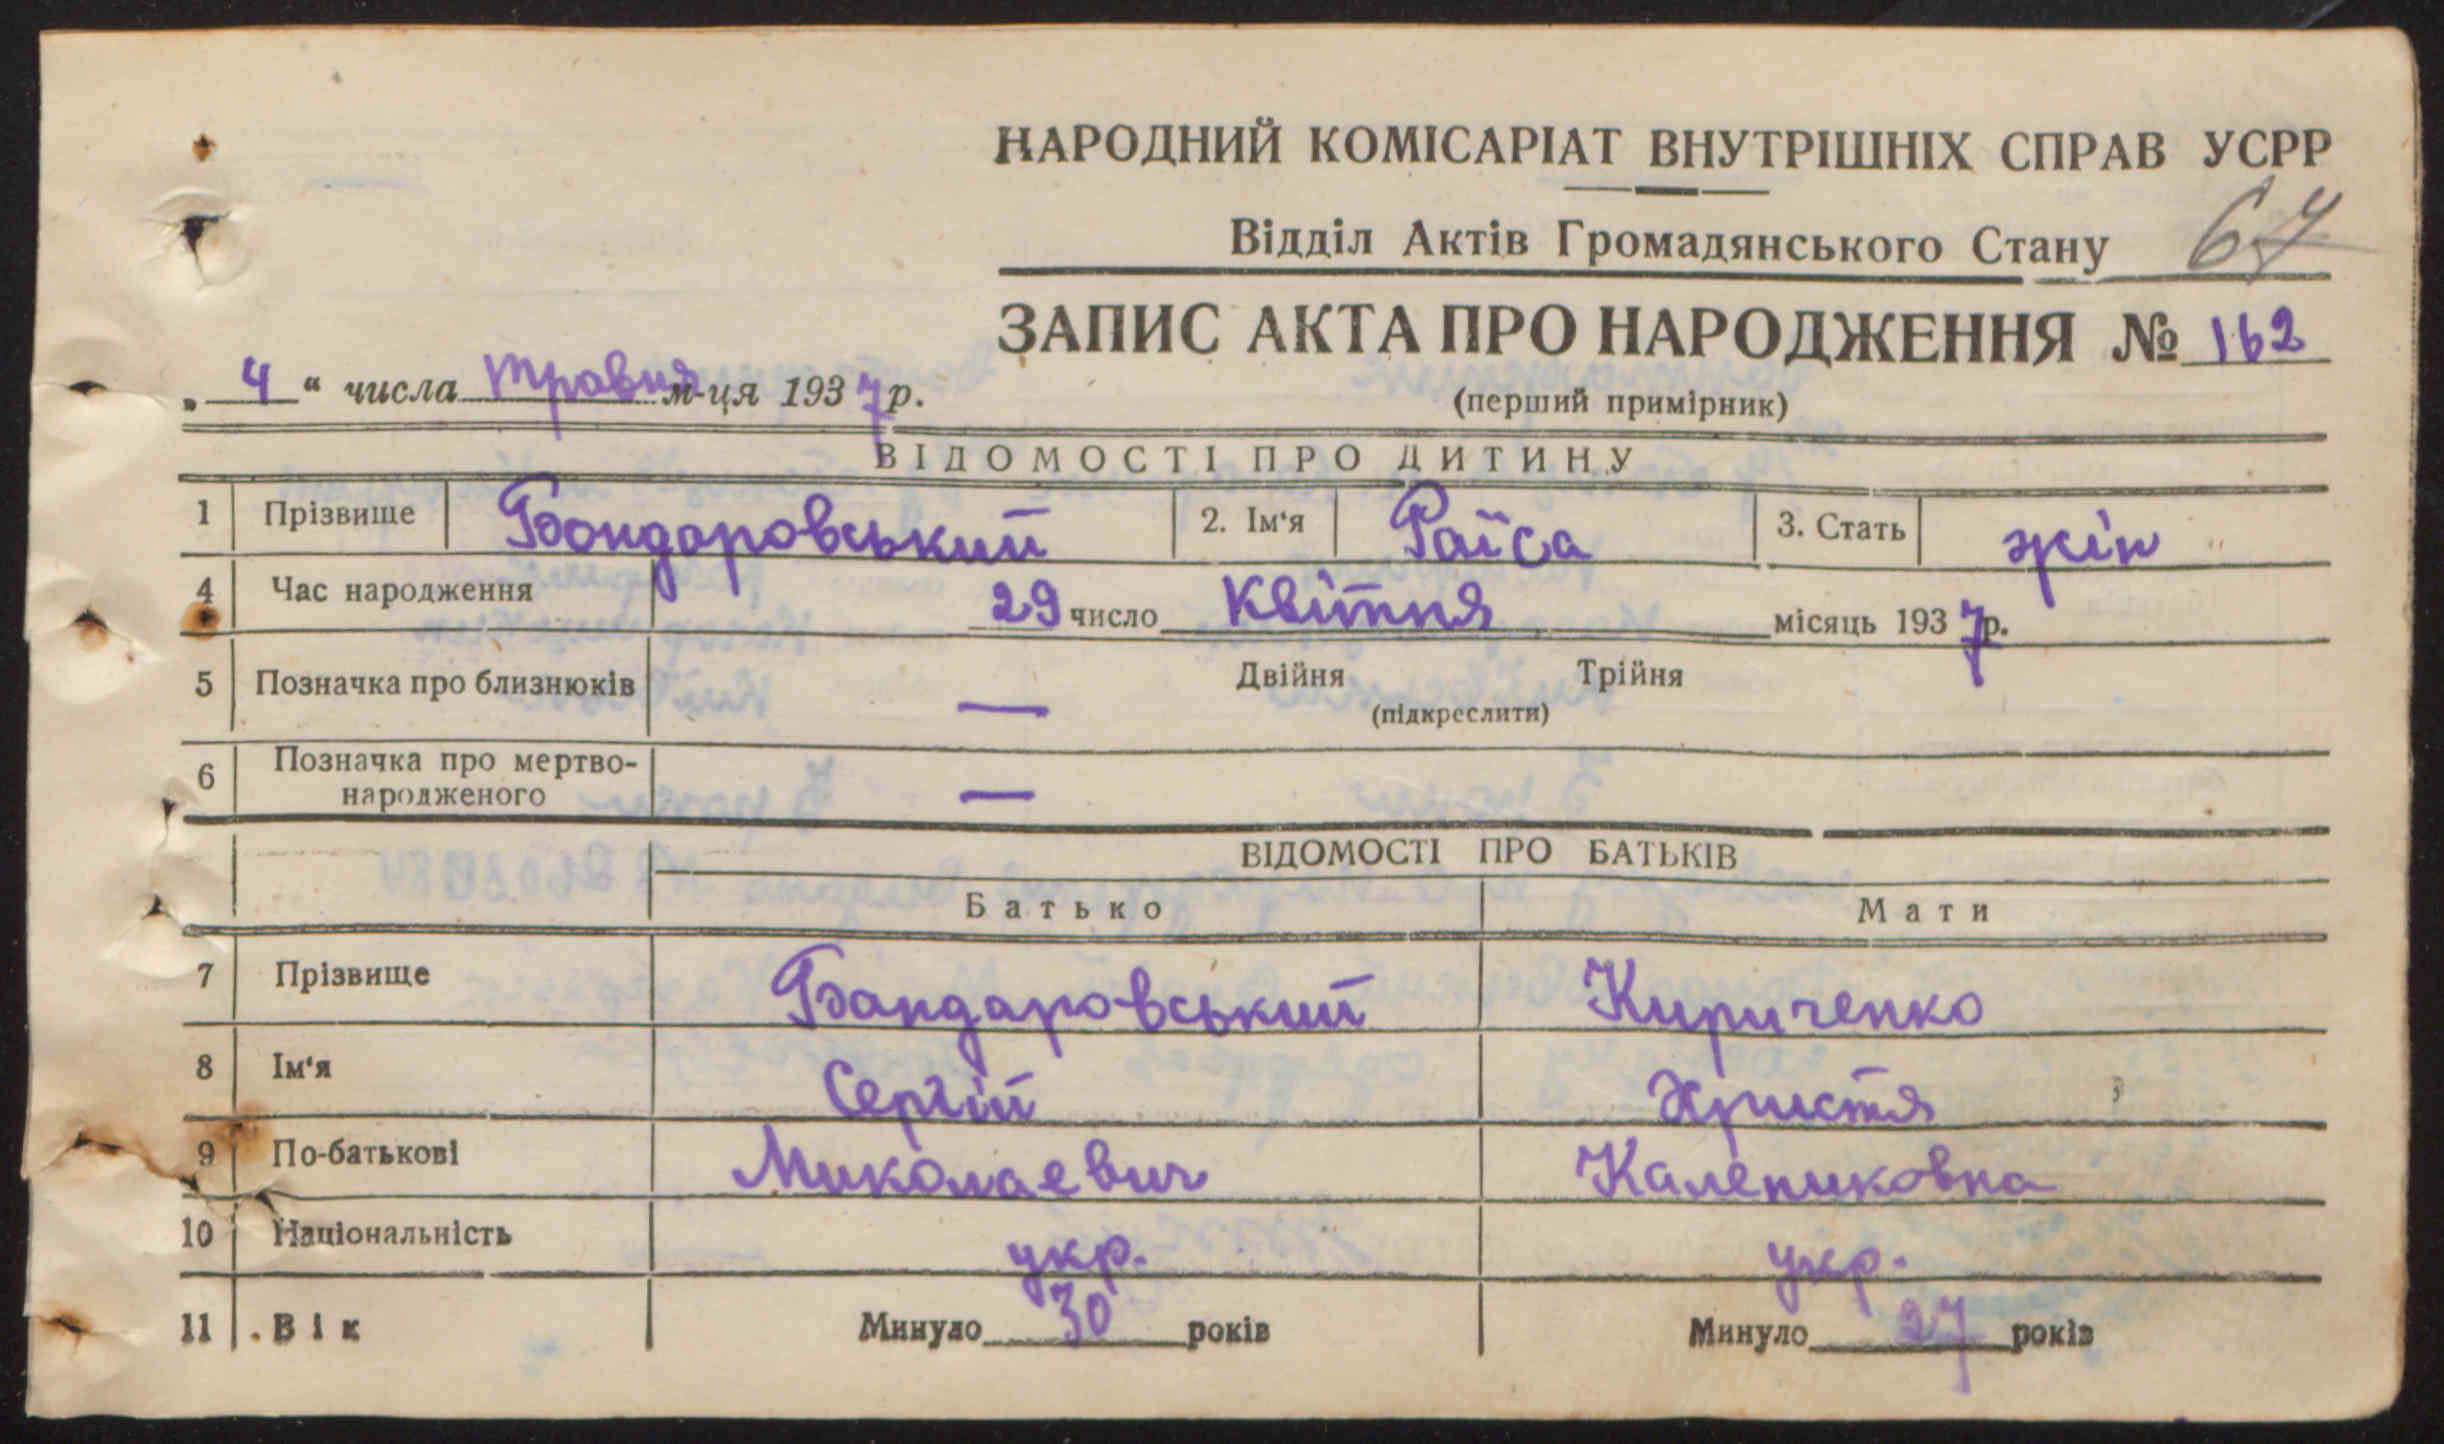 НАРОДНИЙ КОМІСАРІАТ ВНУТРІШНІХ СПРАВ УСРР
Відділ Актів Громадянського Стану 67
ЗАПИС АКТА ПРО НАРОДЖЕННЯ № 162
„ 4 “ числа травня м-ця 1937 р.
(перший примірник)
ВІДОМОСТІ ПРО ДИТИНУ
1 Прізвище Бондаровський 2. Ім‘я Раїса 3. Стать жін
4 Час народження 29 число Квітня місяць 1937 р.
5 Позначка про близнюків — Двійня Трійня
(підкреслити)
6 Позначка про мертво-
народженого —
ВІДОМОСТІ ПРО БАТЬКІВ
Батько Мати
7 Прізвище Бондаровський Кириченко
8 Ім‘я Сергій Христя
9 По-батькові Миколаевич Калениковна
10 Національність укр. укр.
11 Вік Минуло 30 років Минуло 27 років